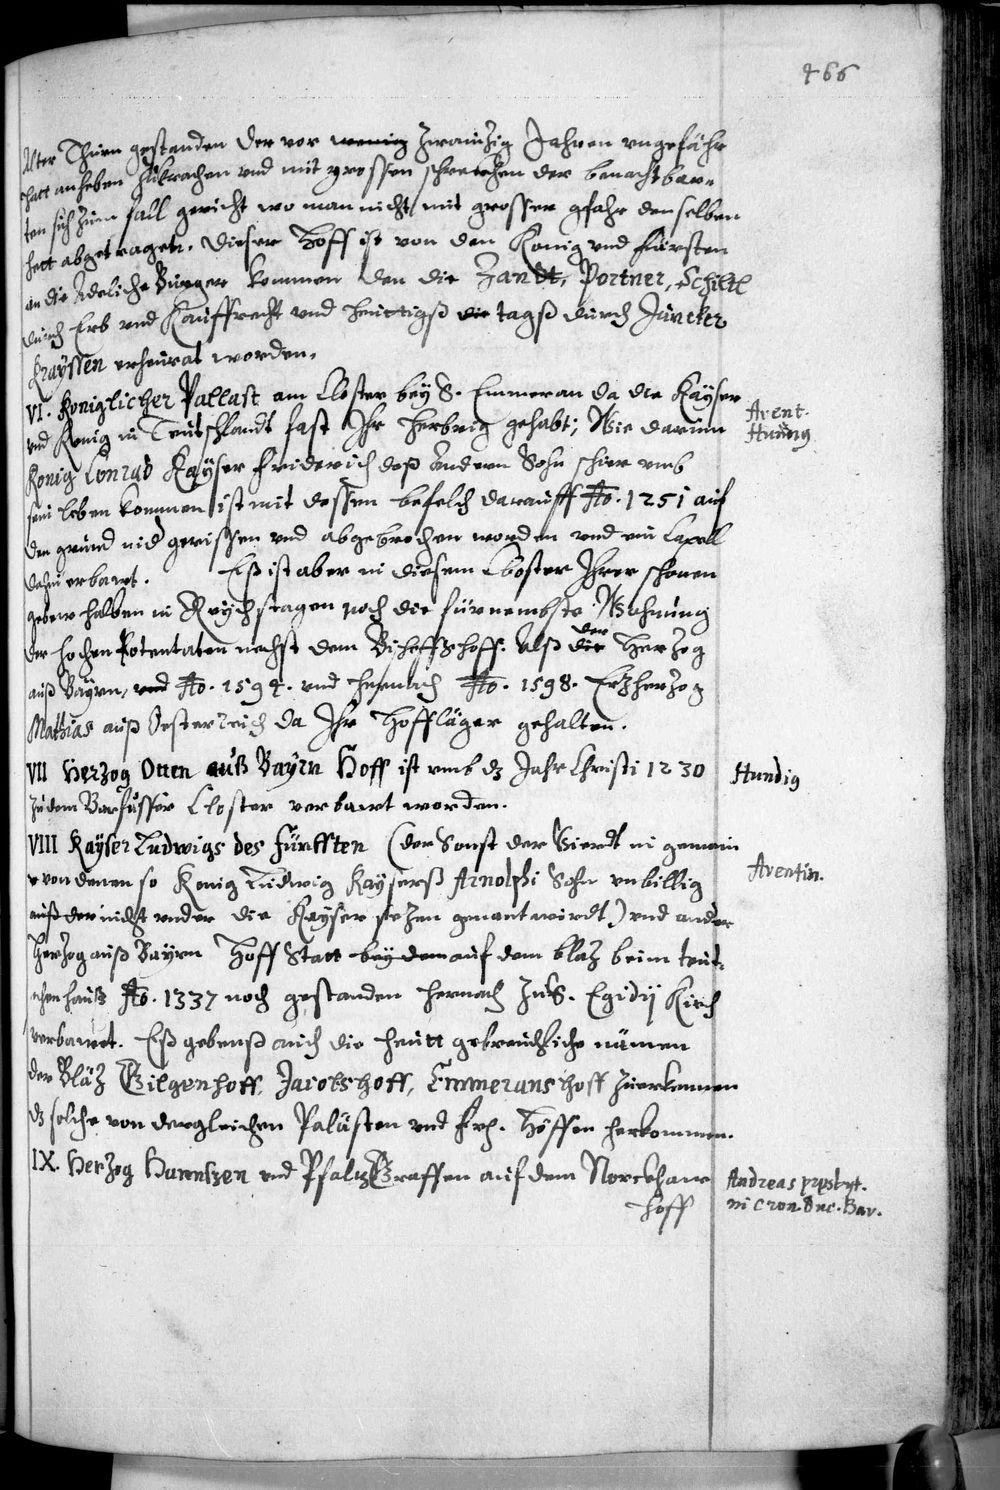 466
Alter Thurn gestanden der vor wenig zwainzig Jahren ungefähr
hatt anheben zukrachen und mit grossen schrecken der benachtbar-
ten sich zum fall gericht wo man nicht mit grosser gfahr denselben
hett abgetragen. Dieser Hoff ist von den Konig und Fürsten
an die Adeliche Burger kommen den die Zandt, Portner, Schiltl
durch Erb und Kauffrecht und heuttigß die tagß durch Juncker
Krayssen erheurat worden.
VI. Koniglicher Pallast am Closter bey S. Emmeran da die Kayser
und Konig in Teutschlandt fast Ihr herbrig gehabt; Wie darinn
Avent.
Hundig
Konig Conrad Kayser Friderich deß Andern Sohn schier umb
sein leben kommen ist mit dessen befelch darauff Ao. 1251 auf
den grund nid gerissen und abgebrochen worden und ein Capell
dahin erbawt. Eß ist aber in diesem Closter Ihrer schonen
gebew halben in Reychstagen noch die fürnembste Wohnung
der hochen Potentaten nechst dem Bischoffshoff. Alß die der Herzog
auß Bayrn, und Ao. 1594. und hernach Ao. 1598. Erzherzog
Mathias auß Oesterreich da Ihr Hoffläger gehalten.
VII Herzog Otten auß Bayrn Hoff ist umb dz Jahr Christi 1230
Hundig
zu dem Barfusser Closter verbawt worden.
VIII Kayser Ludwigs des Fünfften (der Sonst der Vierdt in gemein
von denen so Konig Ludwig Kayserß Arnolphi Sohn unbillig
Aventin.
auß der nicht under die Kayser sezen genant wirdt) und ander
Herzog auß Bayrn Hoff Statt bey dem auf dem blaz beim teut-
schen hauß Ao. 1337 noch gestanden hernach zu S. Egidij Kirch
verbawet. Eß gebenß auch die heutt gebreuchliche nämen
der Bläz Gilgenhoff, Jacobshoff, Emmeranshoff zuerkennen
dz solche von dergleichen Palästen und Höffen herkommen.
IX. Herzog Hainrichen und PfalzGraffen auf dem
Andreas prpsbyt.
in Cron. Duc. Bav.
hoff